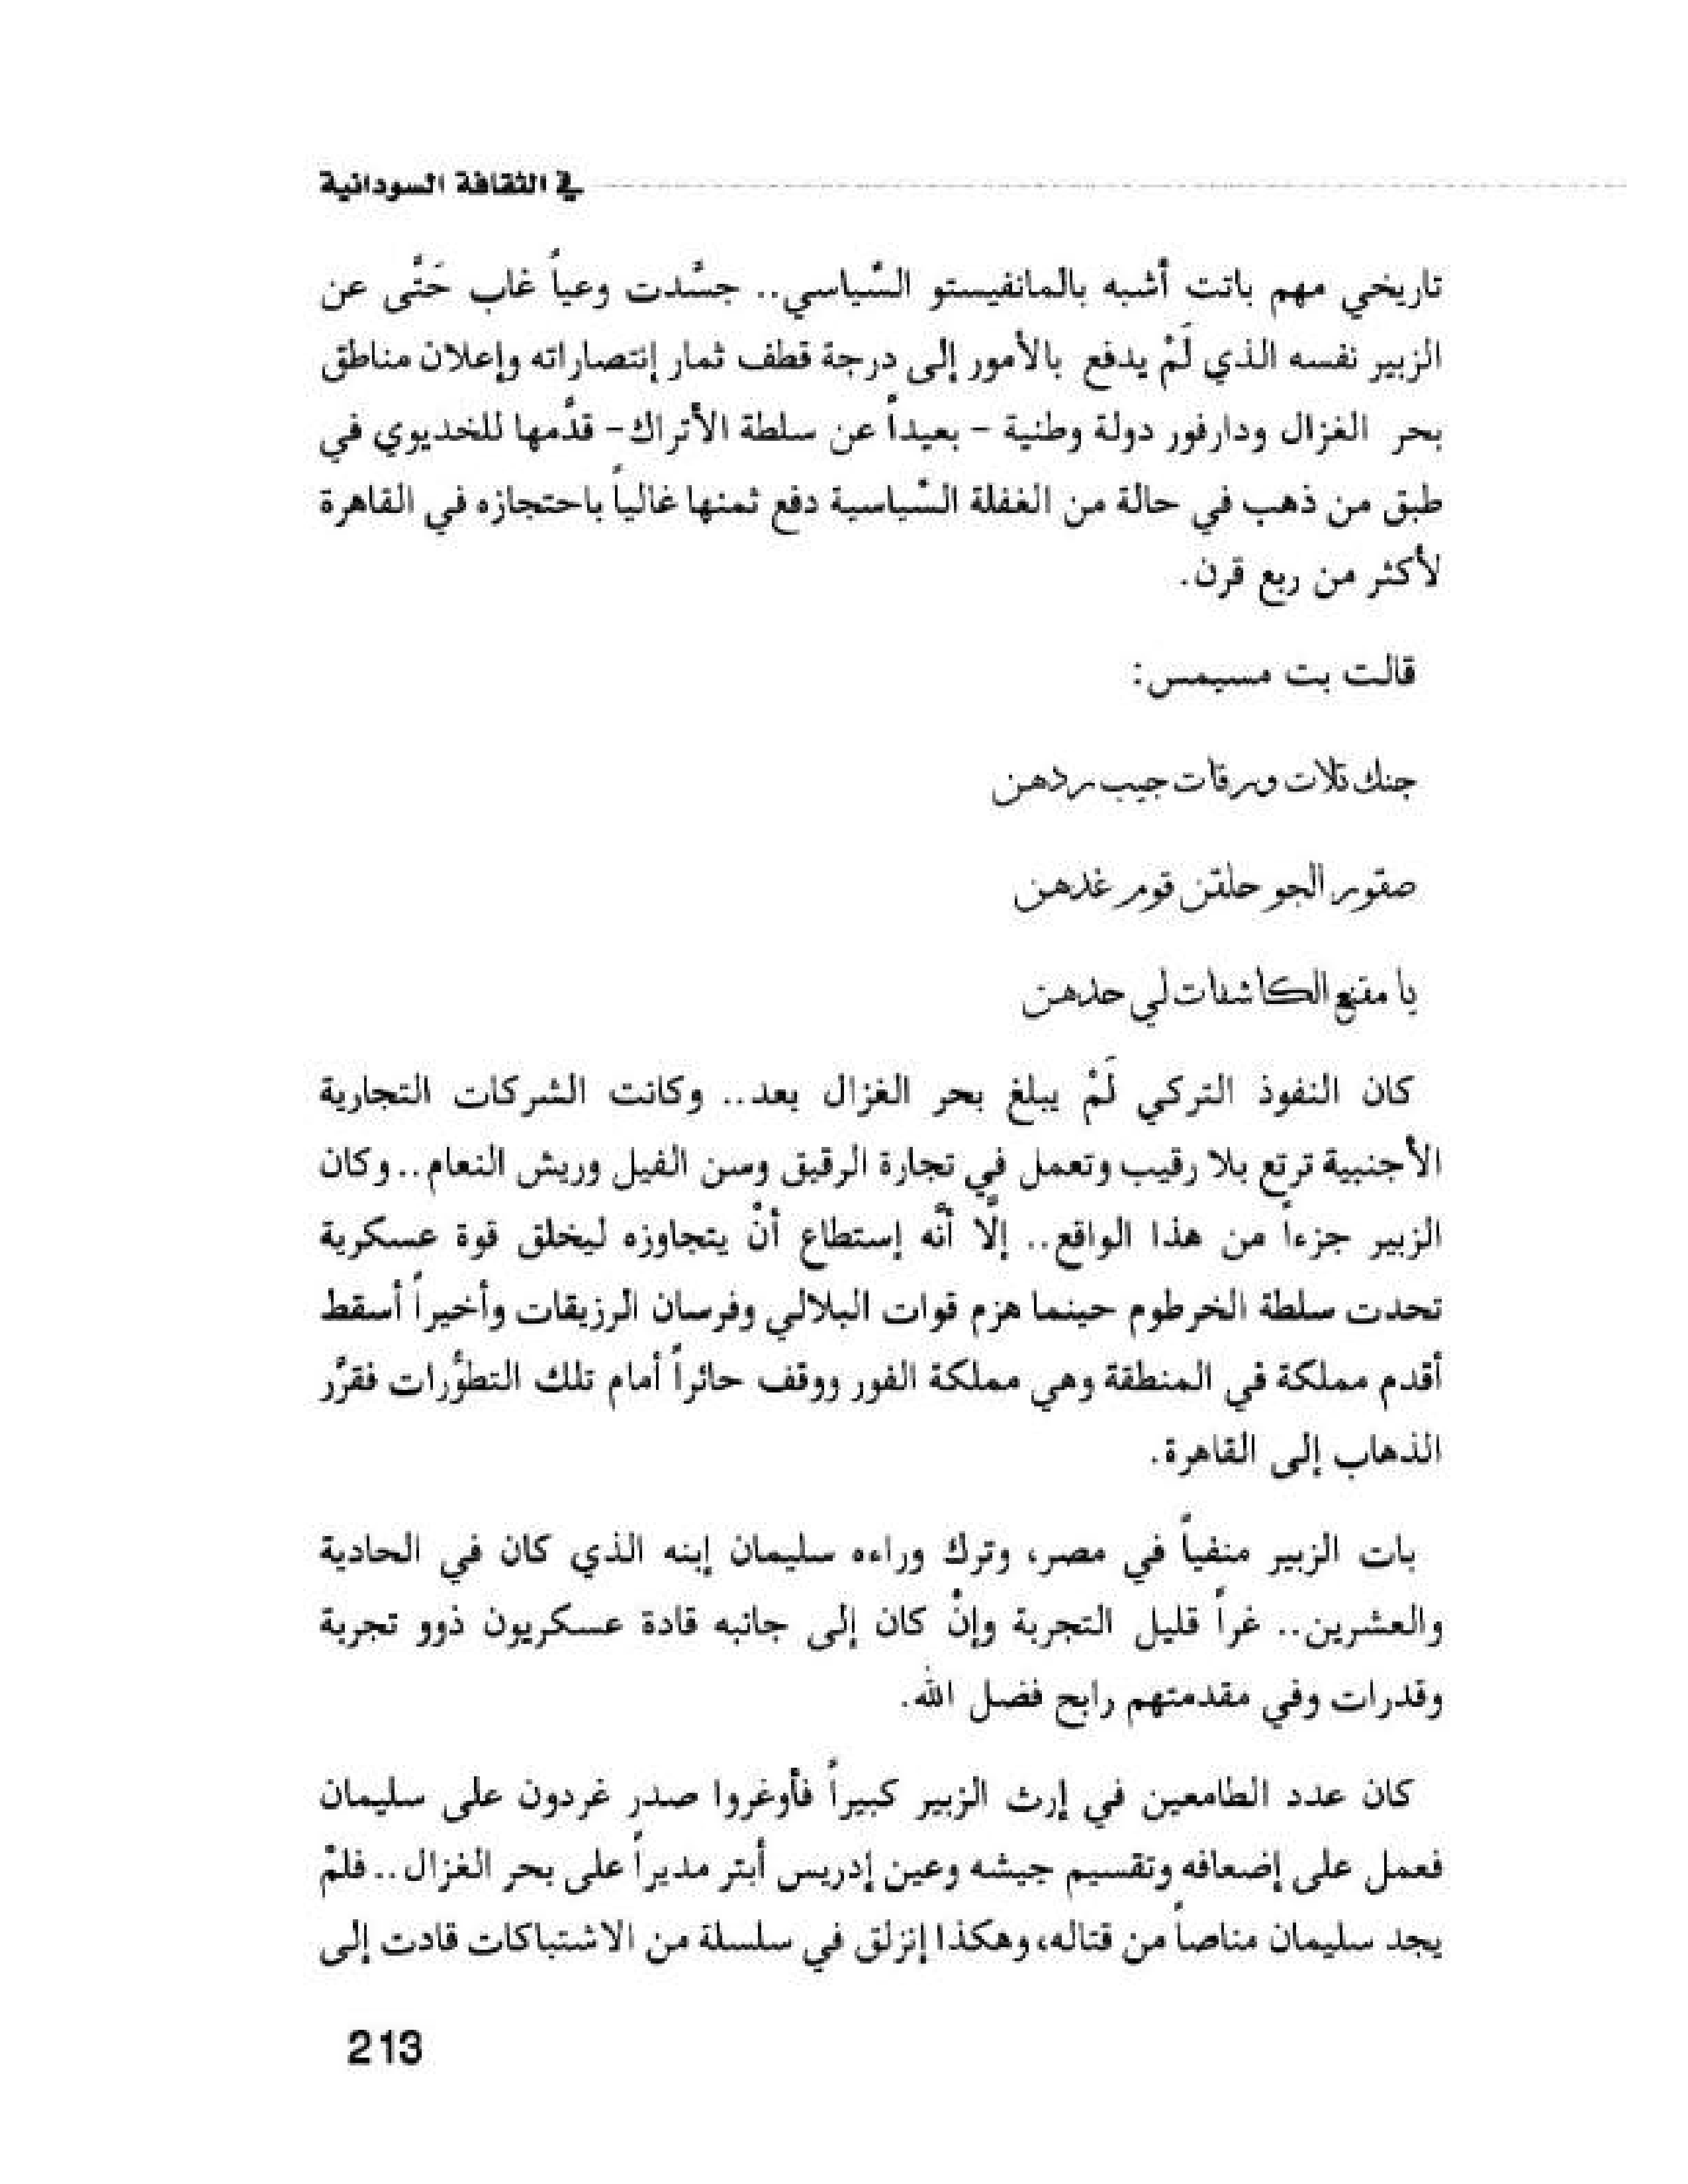 في الثقافة السودانية
تاريخي مهم باتت أشبه بالمانفيستو السِّياسي.. جسَّدت وعياً غاب حَتَّى عن
الزبير نفسه الذي لَمْ يدفع بالأمور إلى درجة قطف ثمار إنتصاراته وإعلان مناطق
بحر الغزال ودارفور دولة وطنية - بعيداً عن سلطة الأتراك- قدَّمها للخديوي في
طبق من ذهب في حالة من الغفلة السِّياسية دفع ثمنها غالياً باحتجازه في القاهرة
لأكثر من ربع قرن.
قالت بت مسيمس:
جنك تلات ورقات جيب ردهن
صقور الجو حلقن قوم غدهن
يا مقنع الكاشفات لي حدهن
كان النفوذ التركي لَمْ يبلغ بحر الغزال بعد.. وكانت الشركات التجارية
الأجنبية ترتع بلا رقيب وتعمل في تجارة الرقيق وسن الفيل وريش النعام.. وكان
الزبير جزءاً من هذا الواقع.. إلَّا أنَّه إستطاع أنْ يتجاوزه ليخلق قوة عسكرية
تحدت سلطة الخرطوم حينما هزم قوات البلالي وفرسان الرزيقات وأخيراً أسقط
أقدم مملكة في المنطقة وهي مملكة الفور ووقف حائراً أمام تلك التطوُّرات فقرَّر
الذهاب إلى القاهرة.
بات الزبير منفياً في مصر، وترك وراءه سليمان إبنه الذي كان في الحادية
والعشرين.. غراً قليل التجربة وإنْ كان إلى جانبه قادة عسكريون ذوو تجربة
وقدرات وفي مقدمتهم رابح فضل الله.
كان عدد الطامعين في إرث الزبير كبيراً فأوغروا صدر غردون على سليمان
فعمل على إضعافه وتقسيم جيشه وعين إدريس أبتر مديراً على بحر الغزال.. فلمْ
يجد سليمان مناصاً من قتاله، وهكذا إنزلق في سلسلة من الاشتباكات قادت إلى
213